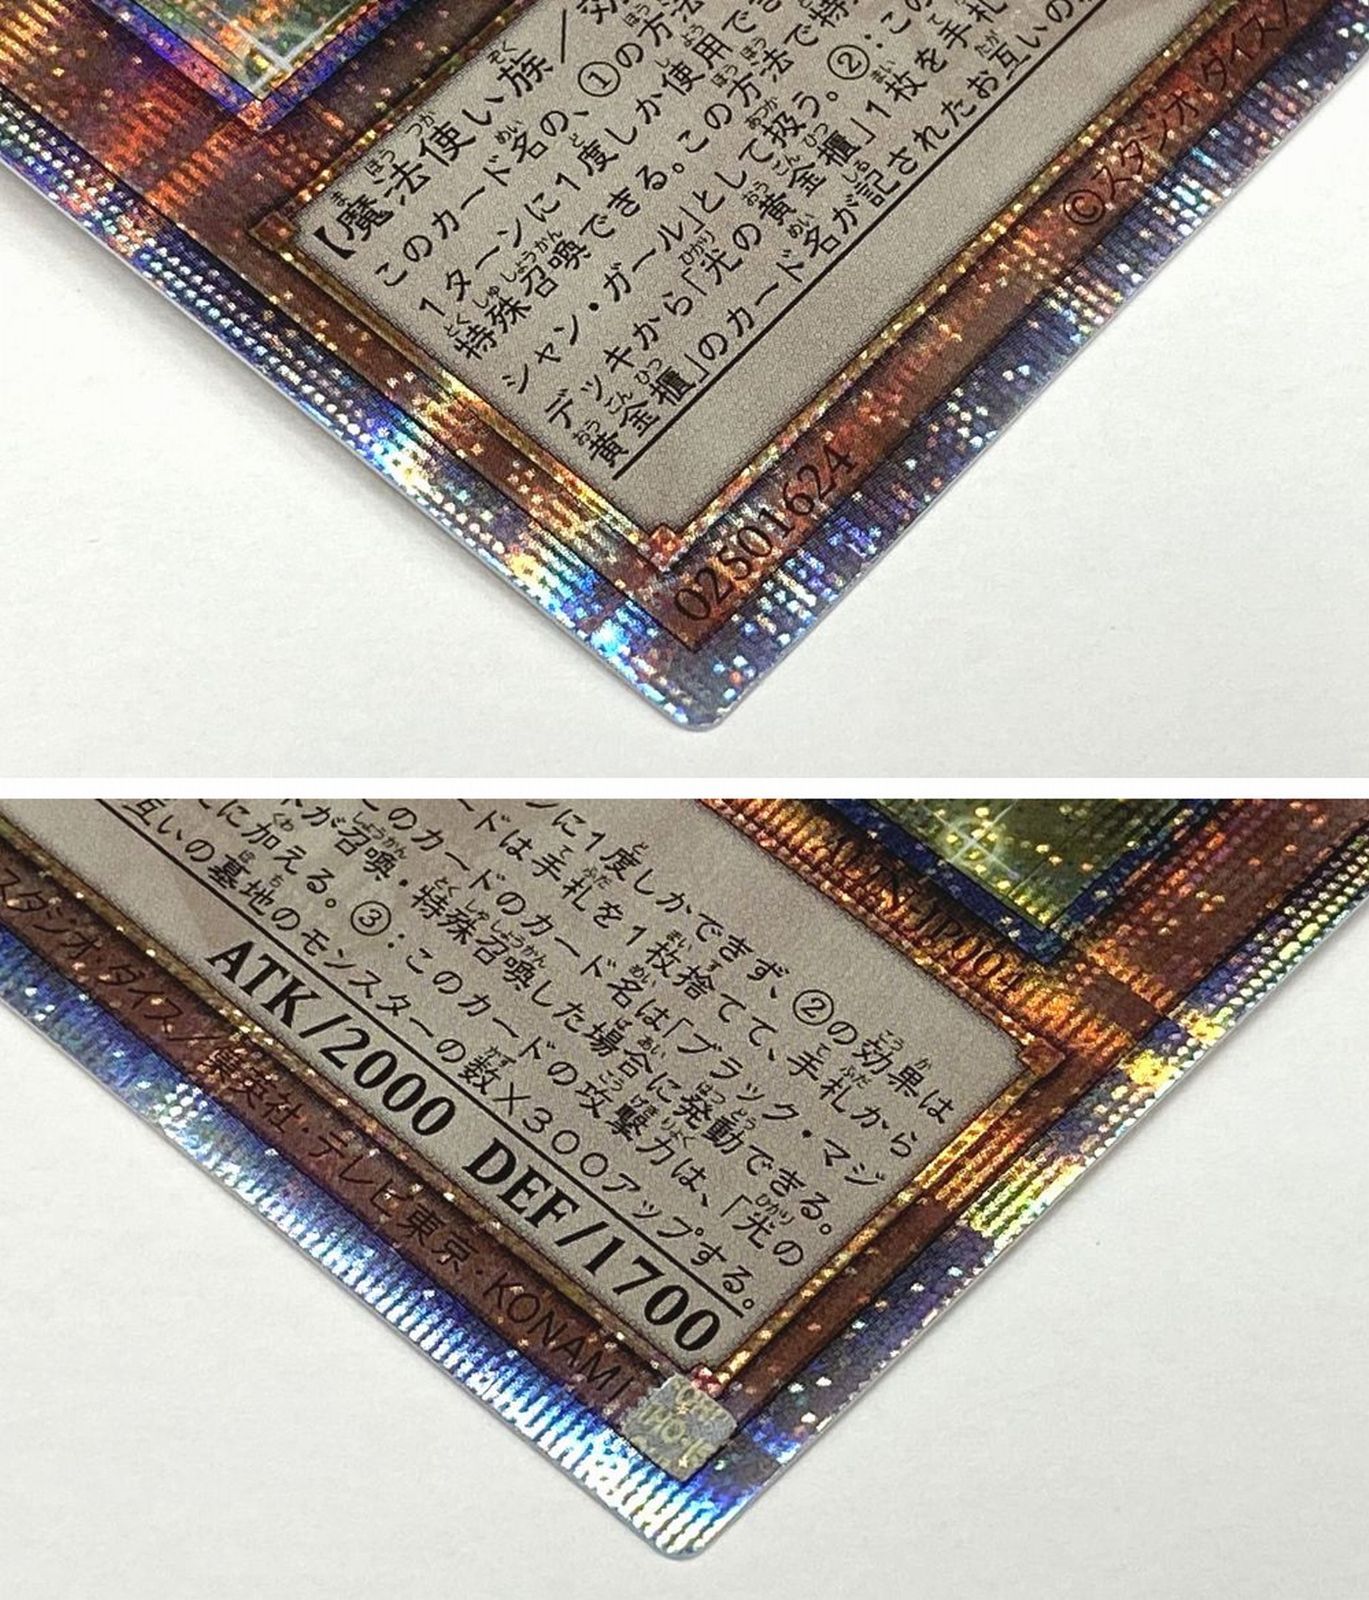 【魔法使い族／効
このカード名の、①の方法
1ターンに1度しか使用で
特殊召喚できる。この方法で特
シャン・ガール」として扱う。②:この
デッキから「光の黄金櫃」1枚を手札
黄金櫃」のカード名が記されたお互いの
02501624
©スタジオ・ダイス／
ンに1度しかできず、②の効果は
ードは手札を1枚捨てて、手札から
このカードのカード名は「ブラック・マジ
ドが召喚・特殊召喚した場合に発動できる。
に加える。③:このカードの攻撃力は、「光の
互いの墓地のモンスターの数×300アップする。
ATK/2000 DEF/1700
スタジオ・ダイス／集英社・テレビ東京・KONAMI
JP004